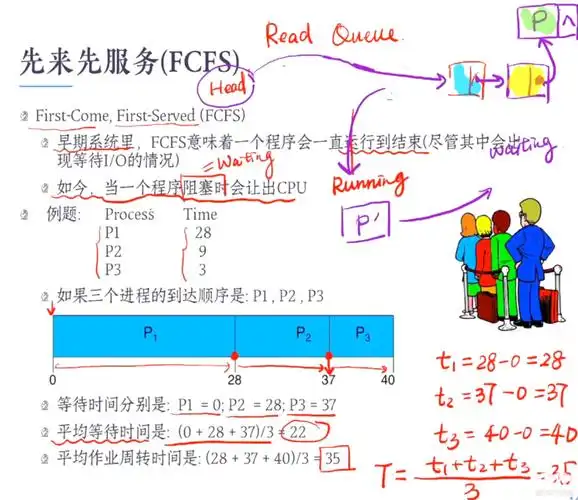 Read Queue.
P ∧
先来先服务(FCFS)
Head
First-Come, First-Served (FCFS)
早期系统里，FCFS意味着一个程序会一直运行到结束(尽管其中会出
现等待I/O的情况)
waiting
= Waiting
如今，当一个程序阻塞时会让出CPU
Running
P'
例题: Process Time
P1 28
P2 9
P3 3
如果三个进程的到达顺序是: P1 , P2 , P3
P1 P2 P3
0 28 37 40
t1 = 28-0 = 28
t2 = 37-0 = 37
t3 = 40-0 = 40
等待时间分别是: P1 = 0; P2 = 28; P3 = 37
平均等待时间是: (0 + 28 + 37)/3 = 22
平均作业周转时间是: (28 + 37 + 40)/3 = 35
T = t1+t2+t3 / 3 = 35